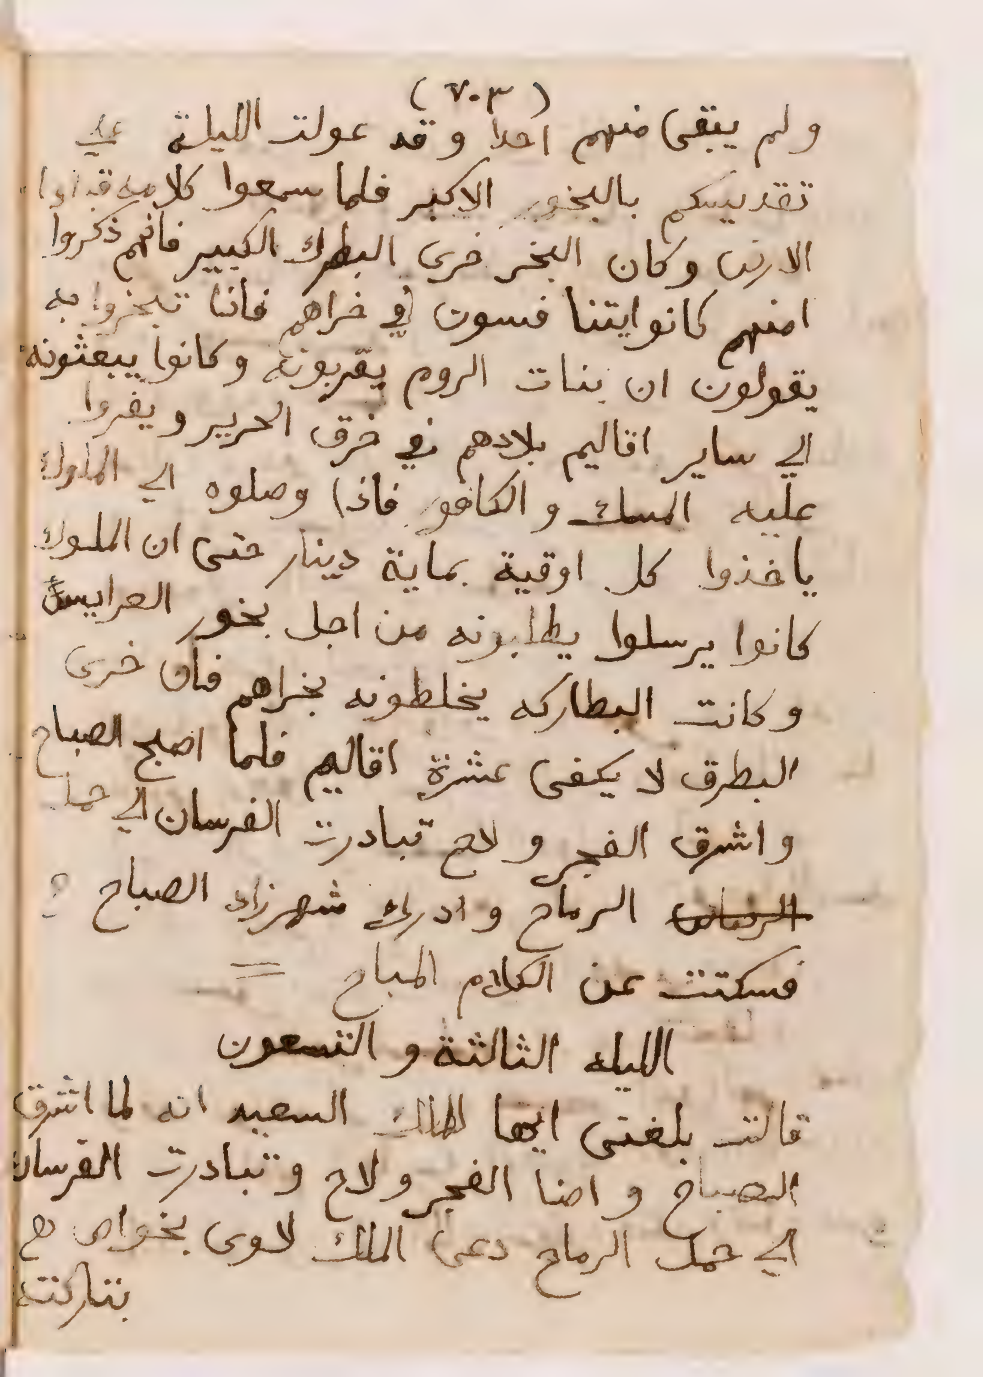 (٧٠٣)
ولم يبقى منهم احدا وقد عولت الليلة على
تقديسكم بالبخور الاكبر فلما سمعوا كلامه قبلوا
الارض وكان البخر خرى البطرك الكبير فانهم ذكروا
امنهم كانوا يتنا فسون في خراهم فاننا تبخروا به
يقولون ان بنات الروم يقربونه وكانوا يبعثونه
الي ساير اقاليم بلادهم في خرق الحرير ويفروا
عليه المسك والكافور فاذا وصلوه الي الملوك
ياخذوا كل اوقية بماية دينار حتى ان الملوك
كانوا يرسلوا يطلبونه من اجل بخور العرايس
وكانت البطاركه يخلطونه بخراهم فان خرى
البطرق لا يكفى عشرة اقاليم فلما اصبح الصباح
واشرق الفجر ولاح تبادرت الفرسان الي حمل
الرماح وادرك شهرزاد الصباح
فسكتت عن الكلام المباح
الليله الثالثة والتسعون
قالت بلغنى ايها الملك السعيد انه لما اشرق
الصباح واضا الفجر ولاح وتبادرت الفرسان
الي حمل الرماح دعى الملك لاوى بخواص
بتاركته